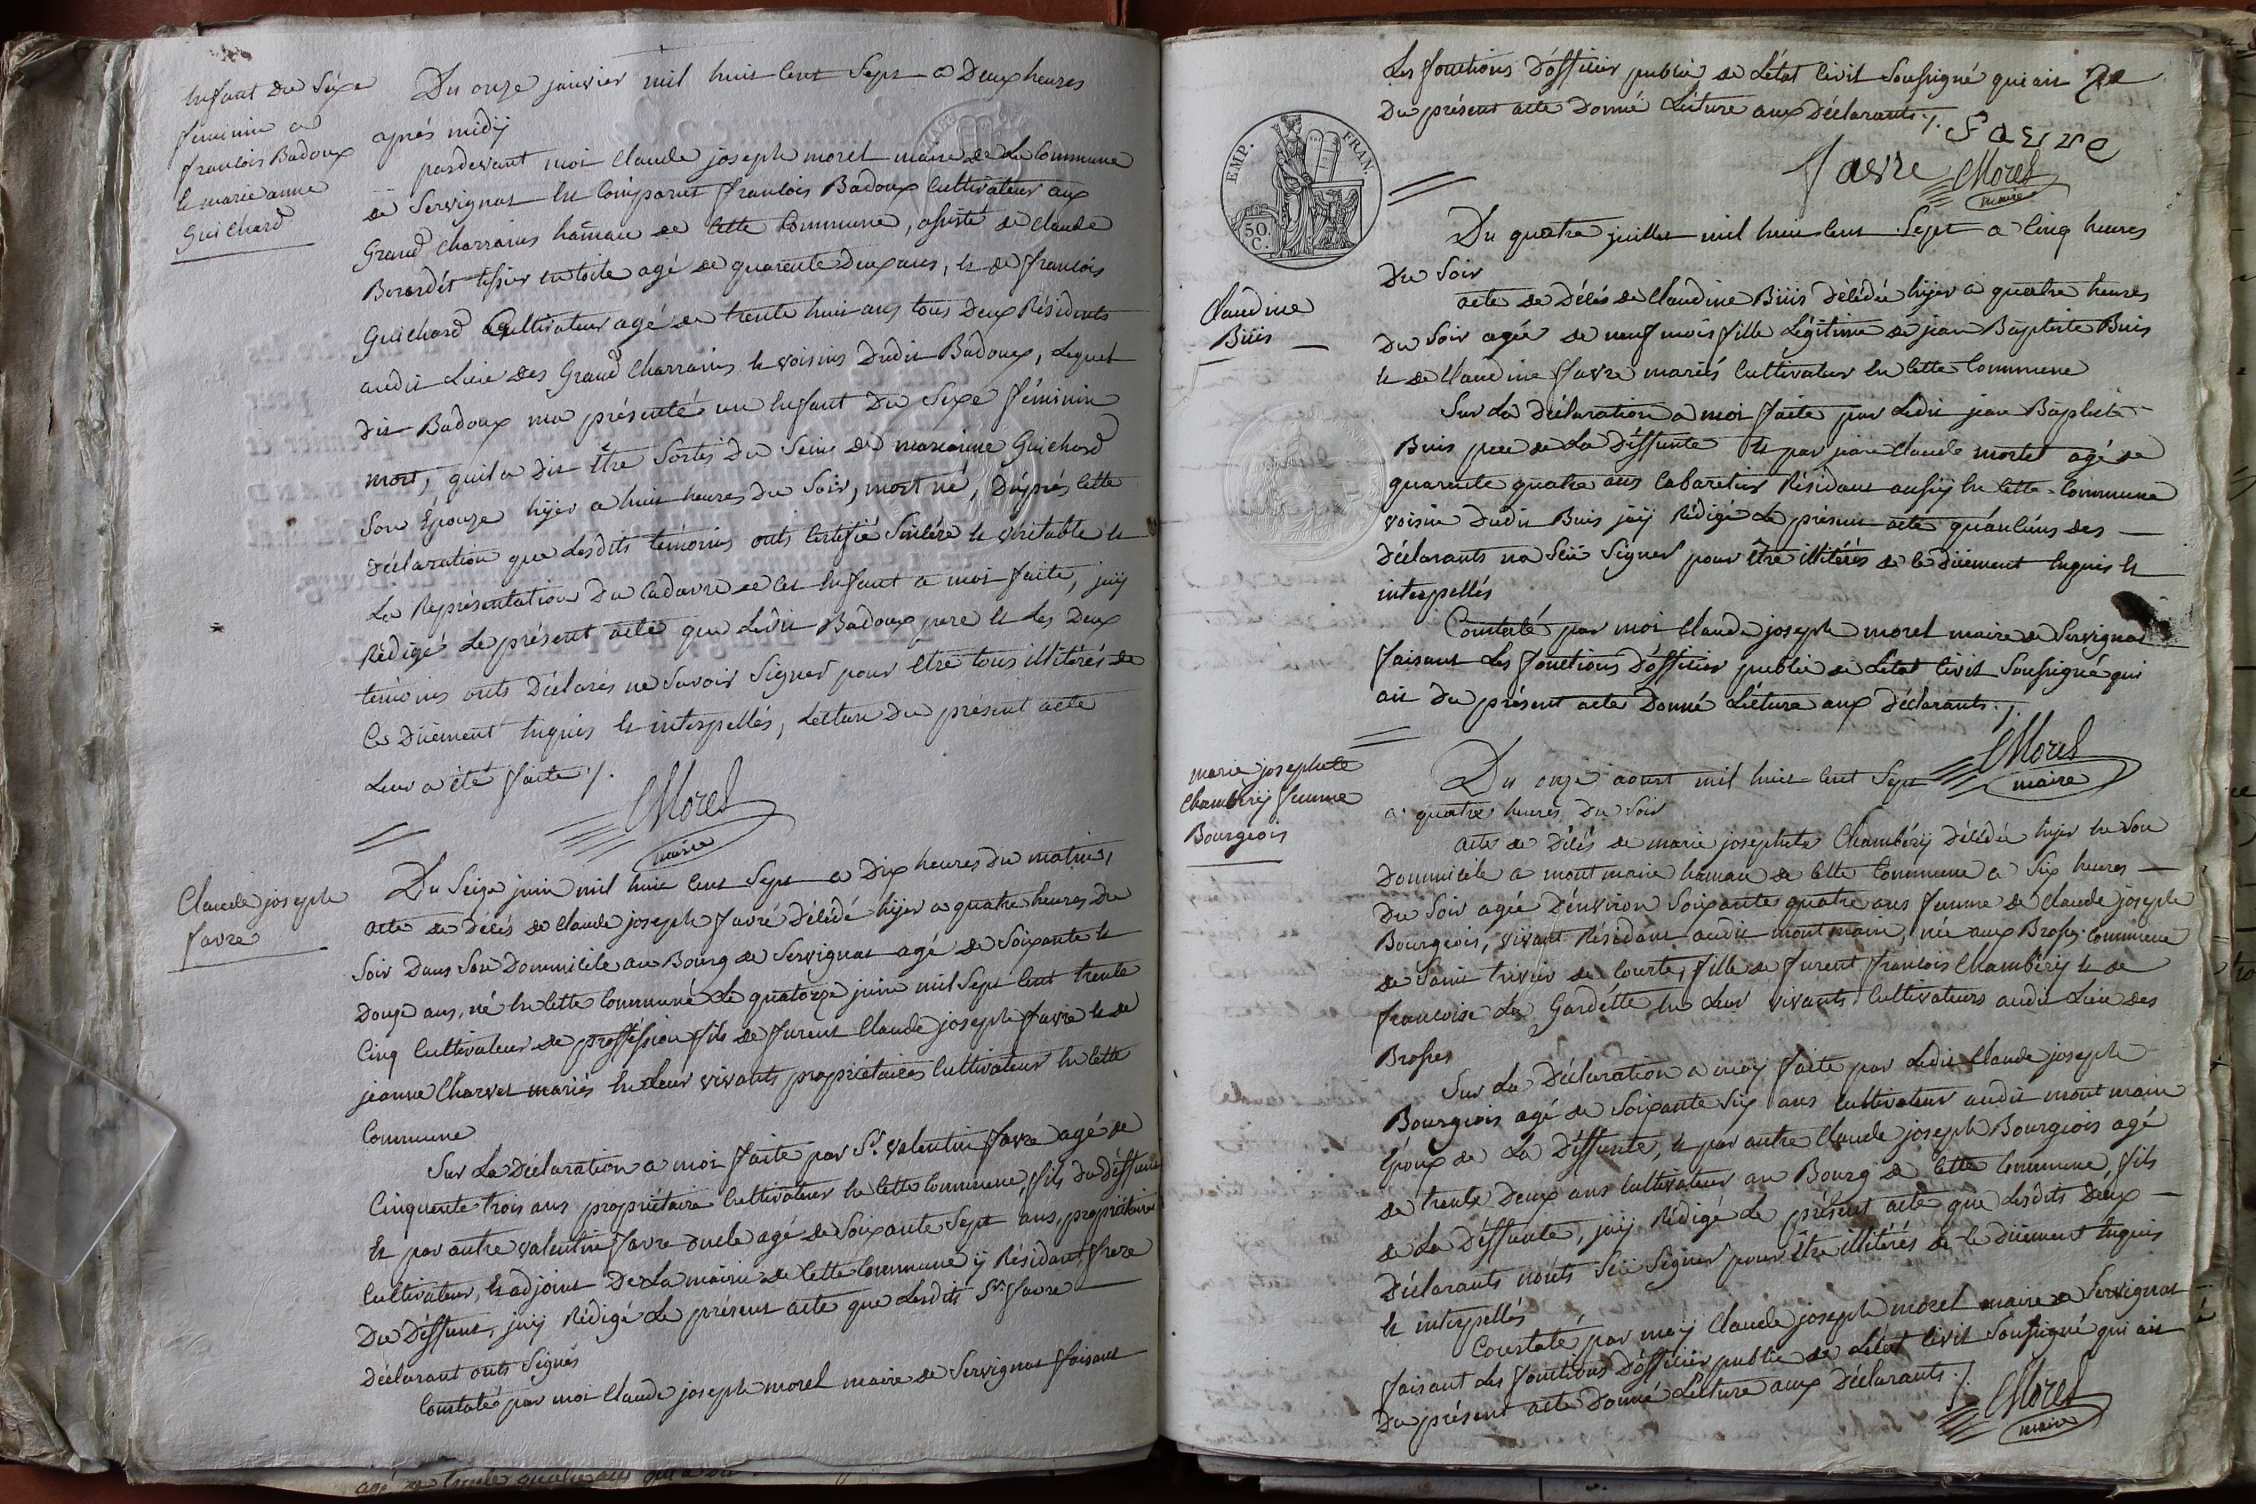 Enfant du Séxe
féminin a
francois Badoux
et marie anne
Guichard
Du onze janvier mil huit cent Sept a Deux heures
aprés midÿ
pardevant moi Claude joseph morel maire de La Commune
de Servignat est Comparut francois Badoux Cultivateur aux
Grand Charrains hamau de Cette Commune, assisté de Claude
Borardét tissier en toile agé de quarente deux ans, et de francois
Guichard Cultivateur agé de trente huit ans tous Deux Résidents
audit Lieu des Grand Charrains et voisins Dudit Badoux, Lequel
dit Badoux ma présenté un Enfant Du Sexe féminin
mort, quil a dit Être Sortis Du Seins de marianne Guichard
Son Epouze hÿer a huit heures du Soir, mort né, D'aprés Cette
déclaration que Lesdits témoins onts Certifié Sincére et véritable et
La Représentation Du Cadavre de Cet Enfant a moi faite, jaÿ
Rédigé Le présent acte que Ledit Badoux pere et Les Deux
témoins onts Déclarés ne Savoir Signer pour etre tous illitérés de
Ce Düement Enquis et interpellés, Lecture Du présent acte
Leur a été faite ./.
CMorel
maire
Claude joseph
favre
Du Seize juin mil huit Cent Sept a Dix heures Du matin,
acte de Décés de Claude joseph favre Décédé hÿer a quatre heures Du
Soir Dans Son Dommicile au Bourg de Servignat agé de Soixante et
Douze ans, né En Cette Commune Le quatorze juin mil Sept Cent trente
Cinq Cultivateur de proffession fils de furent Claude joseph favre et de
jeanne Charvet mariés En Leur vivants propriétaires Cultivateur En Cette
Commune
Sur La Déclaration a moi faite par Sr. valentin favre agé de
Cinquente trois ans propriétaire Cultivateur En Cette Commune, fils du déffunt
Et par autre valentin favre oncle agé de Soixante Sept ans, propriétaire
Cultivateur, Et adjoint De La mairie de Cette Commune ÿ Résidant, frere
Du Déffunt, jaÿ Rédigé Le présent acte que Lesdits Srs. favre
Déclarant onts Signés
Constaté par moi Claude joseph morel maire de Servignat faisant
Les fonctions D'officier public de L'état Civil Soussigné qui ait
Du présent acte Donné Lécture aux Déclarants ./. Favre
favre CMorel
maire
EMP. FRAN.
50. C.
Claudine
Büis
Du quatre juillet mil huit Cent Sept a Cinq heures
Du Soir
acte de Décés de Claudine Büis Décédée hÿer a quatre heures
Du Soir agée de neuf mois fille Légitime de jean Baptiste Buis
et de Claudine favre mariés Cultivateur En Cette Commune
Sur La Déclaration a moi faite par Ledit jean Baptiste
Buis pere de La Déffunte Et par jean Claude mortel agé de
quarente quatre ans Cabaretier Résidant aussÿ En Cette Commune
voisin Dudit Buis jaÿ Rédigé Le présent acte qu'aucuns des
Déclarants na Seü Signer pour être illitérés de Ce Düement Enquis et
interpellés
Constaté par moi Claude joseph morel maire de Servignat
faisant Les fonctions D'officier public de L'etat Civil Soussigné qui
ait Du présent acte Donné Lécture aux Déclarants ./.
CMorel
maire
marie josephete
Chambérÿ femme
Bourgeois
Du onze aoust mil huit Cent Sept
a quatre heures Du Soir
acte de Décés de marie josephete Chambérÿ Décédée hÿer En Son
Dommicile a montmain hamau de Cette Commune a Six heures
Du Soir agée D'environ Soixante quatre ans femme de Claude joseph
Bourgeois, vivant Résidant audit montmain, née aux Brosses Commune
de Saint trivier de Courtes, fille de furent francois Chambérÿ et de
francoise La Gardétte En Leur vivants Cultivateurs audit Lieu des
Brosses
Sur La Déclaration a moÿ faite par Ledit Claude joseph
Bourgeois agé de Soixante Six ans Cultivateur audit mont main
Epoux de La Déffunte, et par autre Claude joseph Bourgeois agé
de trente Deux ans Cultivateur au Bourg de Cette Commune, fils
de La Déffunte, jaÿ Rédigé Le présent acte que Lesdits Deux
Déclarants n'onts Seü Signer pour être illitérés de Ce Düement Enquis
et interpellés
Constaté par moÿ Claude joseph morel maire de Servignat
faisant Les fonctions D'officier public de L'état Civil Soussigné qui ait
Du présent acte Donné Lécture aux Déclarants ./.
CMorel
maire